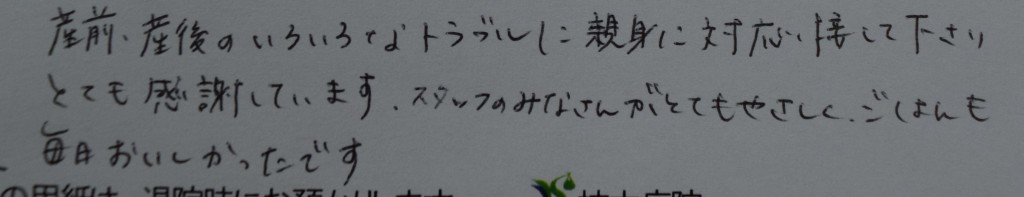 産前、産後のいろいろなトラブルに親身に対応、接して下さり
とても感謝しています、スタッフのみなさんがとてもやさしく、ごはんも
毎日おいしかったです
の用紙は、退院時にお預かり